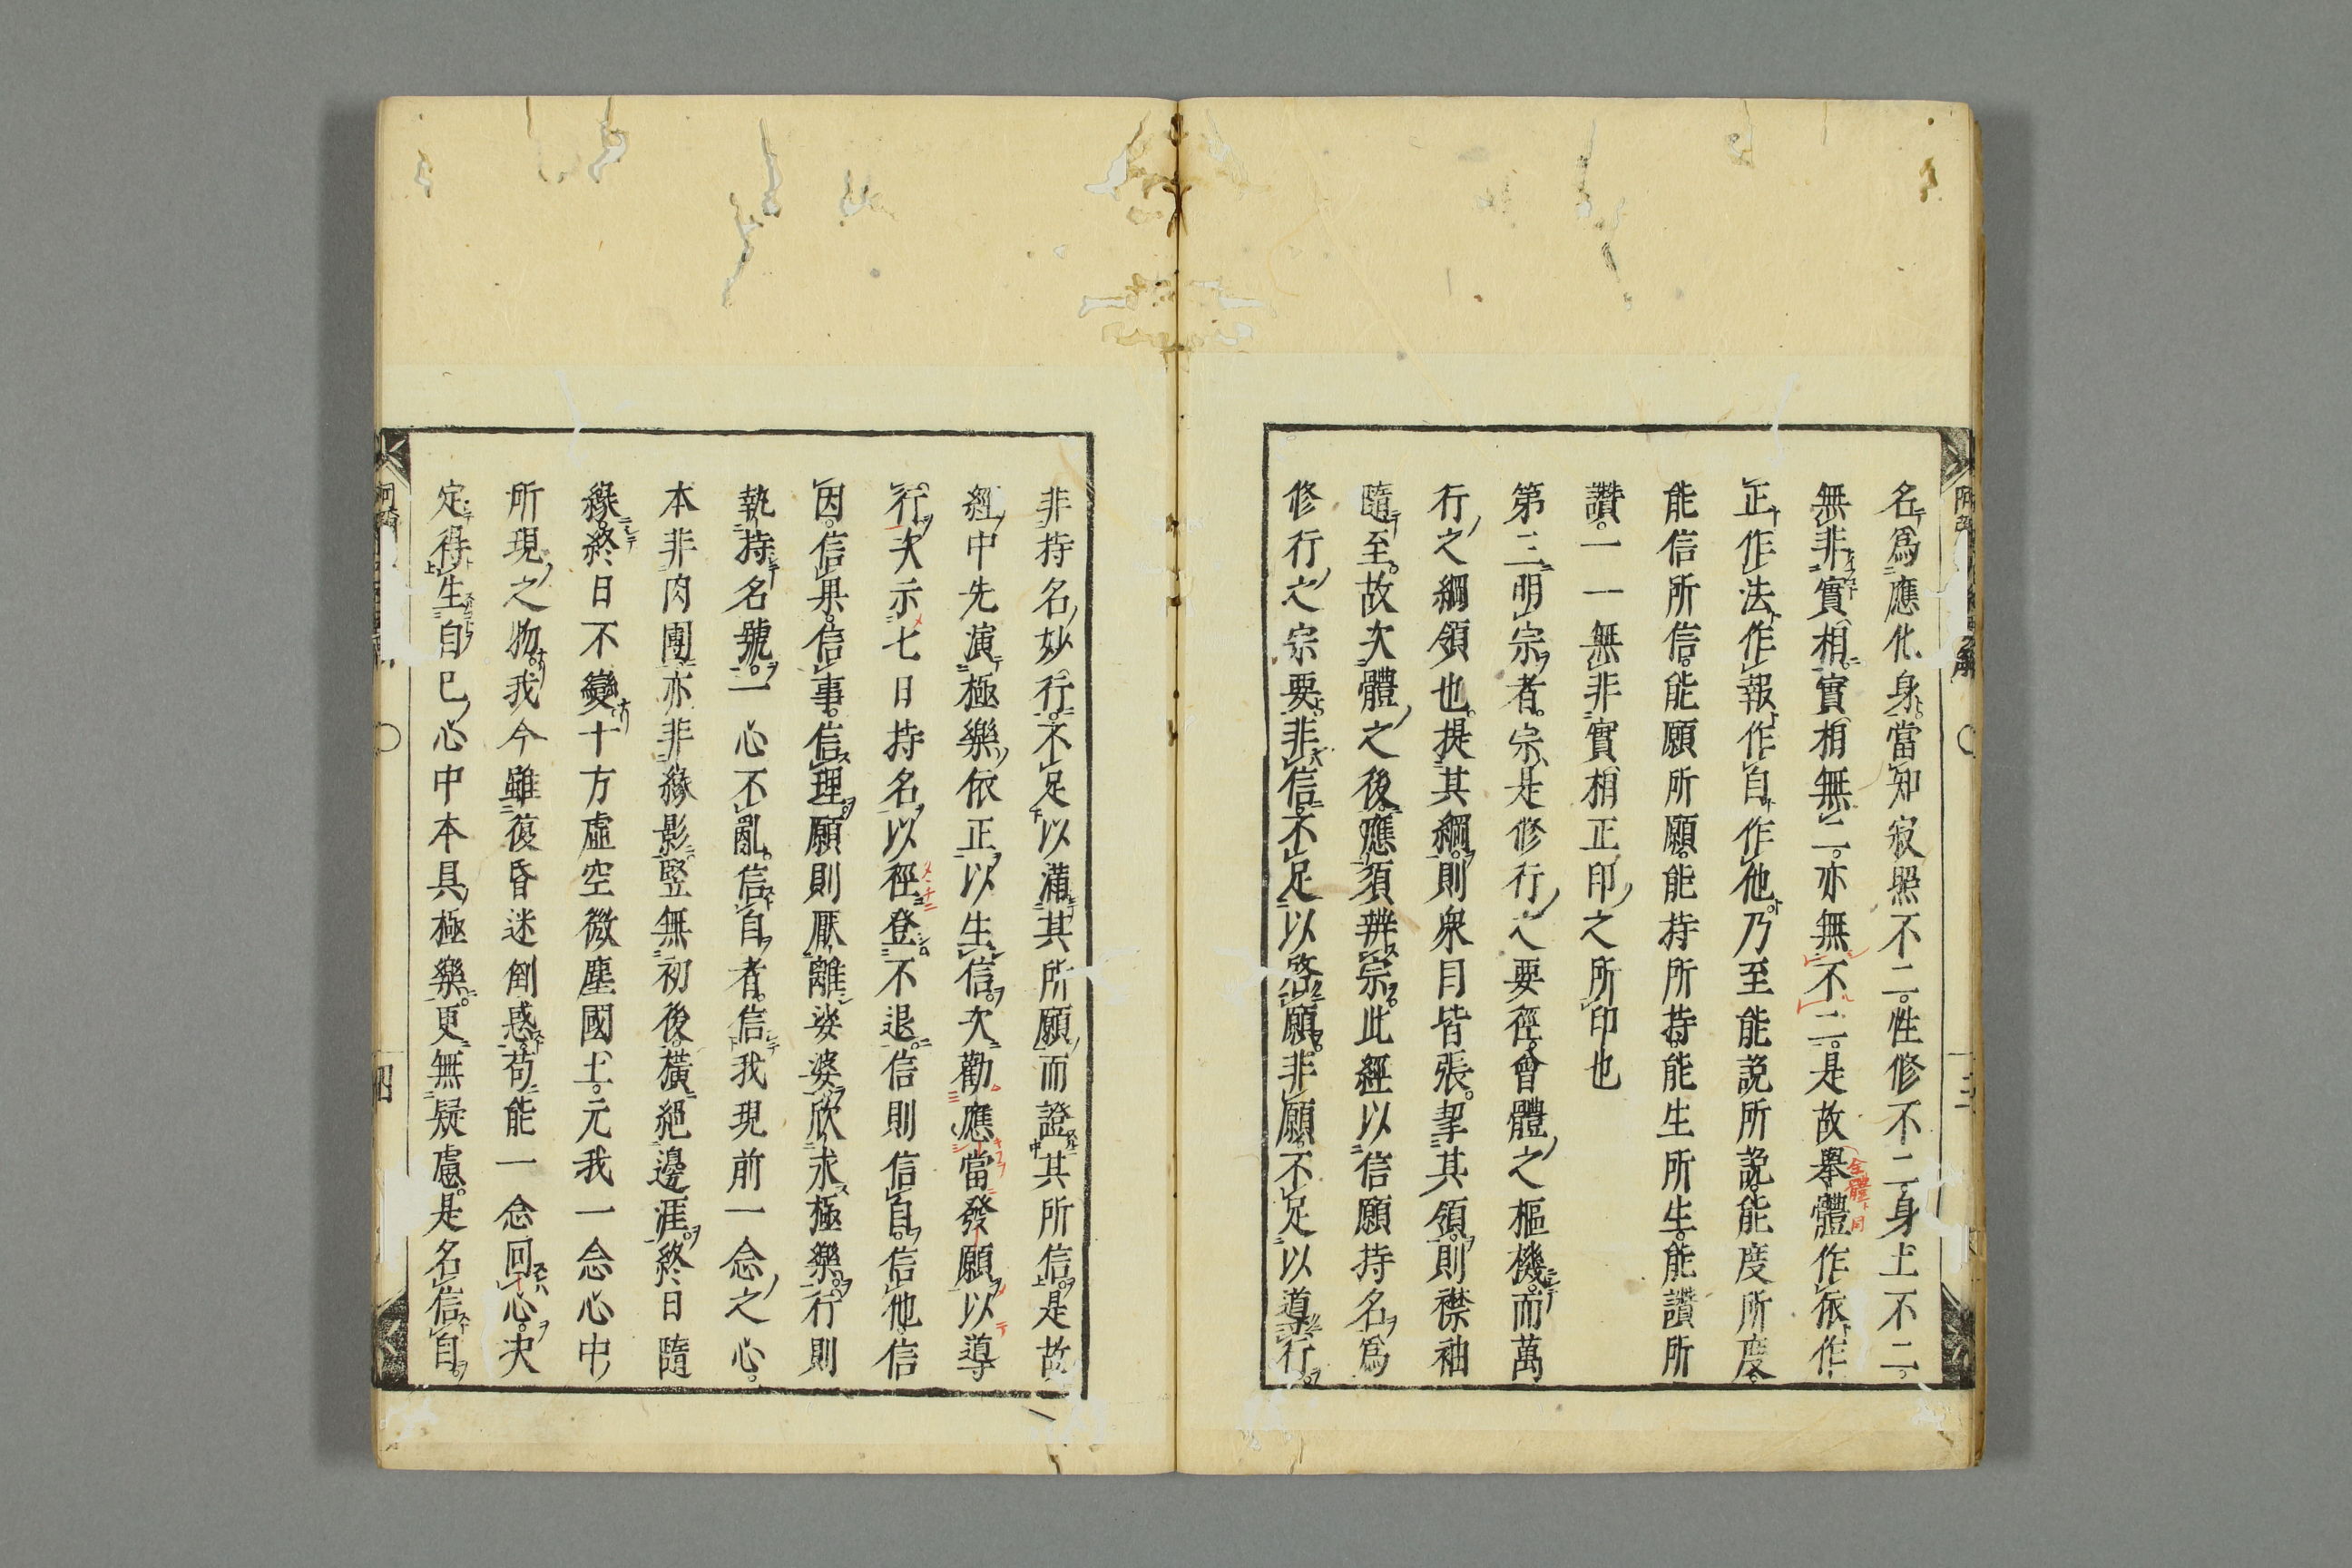 名爲應化身當知寂照不二性修不二身土不二
無非實相實相無二亦無不二是故擧體作依作
全體ト同
正作法作報作自作他乃至能說所說能度所度
能信所信能願所願能持所持能生所生能讚所
讚一一無非實相正印之所印也
第三明宗者宗是修行之要徑會體之樞機而萬
行之綱領也提其綱則衆目皆張挈其領則襟袖
隨至故次體之後應須辨宗此經以信願持名爲
修行之宗要非信不足以啓願非願不足以導行
非持名妙行不足以滿其所願而證其所信是故
經中先演極樂依正以生信次勸應當發願以導
行次示七日持名以徑登不退信則信自信他信
因信果信事信理願則厭離娑婆欣求極樂行則
執持名號一心不亂信自者信我現前一念之心
本非肉團亦非緣影竪無初後橫絕邊涯終日隨
緣終日不變十方虛空微塵國土元我一念心中
所現之物我今雖復昏迷倒惑苟能一念回心決
定得生自己心中本具極樂更無疑慮是名信自
四